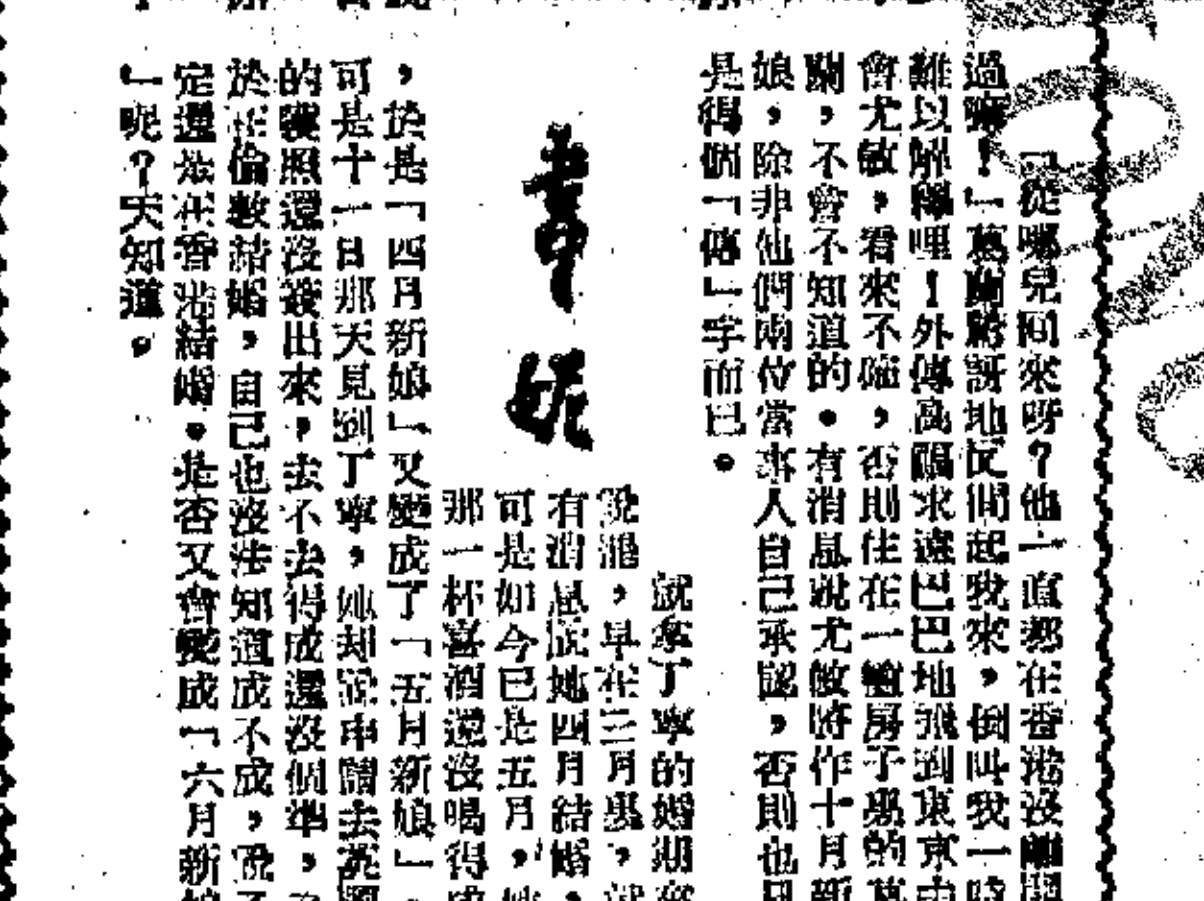 「從哪兒回來呀？他一直都在香港沒離開
過嘛！」葛蘭驚訝地反問起我來，倒叫我一時
難以解釋哩！外傳高 求遠巴巴地飛到東京去
會尤敏，看來不確，否則住在一幢房子裏的葛
蘭，不會不知道的。有消息說尤敏將作十月新
娘，除非他們兩位當事人自己承認，否則也只
是得個「傳」字而已。
就拿丁寧的婚期來
說罷，早在三月裏，就
有消息說她四月結婚，
可是如今已是五月，她
那一杯喜酒還沒喝得成
，於是「四月新娘」又變成了「五月新娘」。
可是十一日那天見到丁寧，她却說申請去英國
的護照還沒簽出來，去不去得成還沒個準，
於在倫敦結婚，自己也沒法知道成不成，說
定還是在香港結婚。是否又會變成「六月新娘
」呢？天知道。